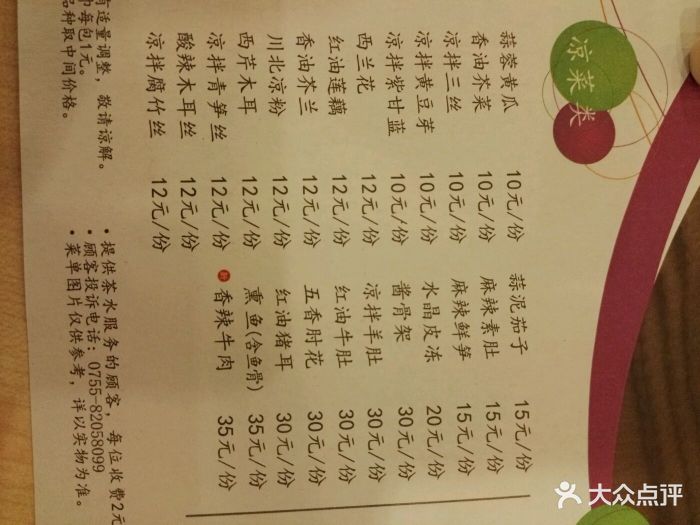 凉菜类
蒜蓉黄瓜 10元/份 蒜泥茄子 15元/份
香油芥菜 10元/份 麻辣素肚 15元/份
凉拌三丝 10元/份 麻辣鲜笋 15元/份
凉拌黄豆芽 10元/份 水晶皮冻 20元/份
凉拌紫甘蓝 10元/份 酱骨架 30元/份
西兰花 12元/份 凉拌羊肚 30元/份
红油莲藕 12元/份 红油牛肚 30元/份
香油芥兰 12元/份 五香肘花 30元/份
川北凉粉 12元/份 红油猪耳 30元/份
西芹木耳 12元/份 熏鱼(含鱼骨) 35元/份
凉拌青笋丝 12元/份 香辣牛肉 35元/份
酸辣木耳丝 12元/份
凉拌腐竹丝 12元/份
有适量调整,敬请谅解。 •提供茶水服务的顾客,每位收费2元
每包1元。 •顾客投诉电话:0755-82058099
品种取中间价格。 •菜单图片仅供参考,详以实物为准。
大众点评